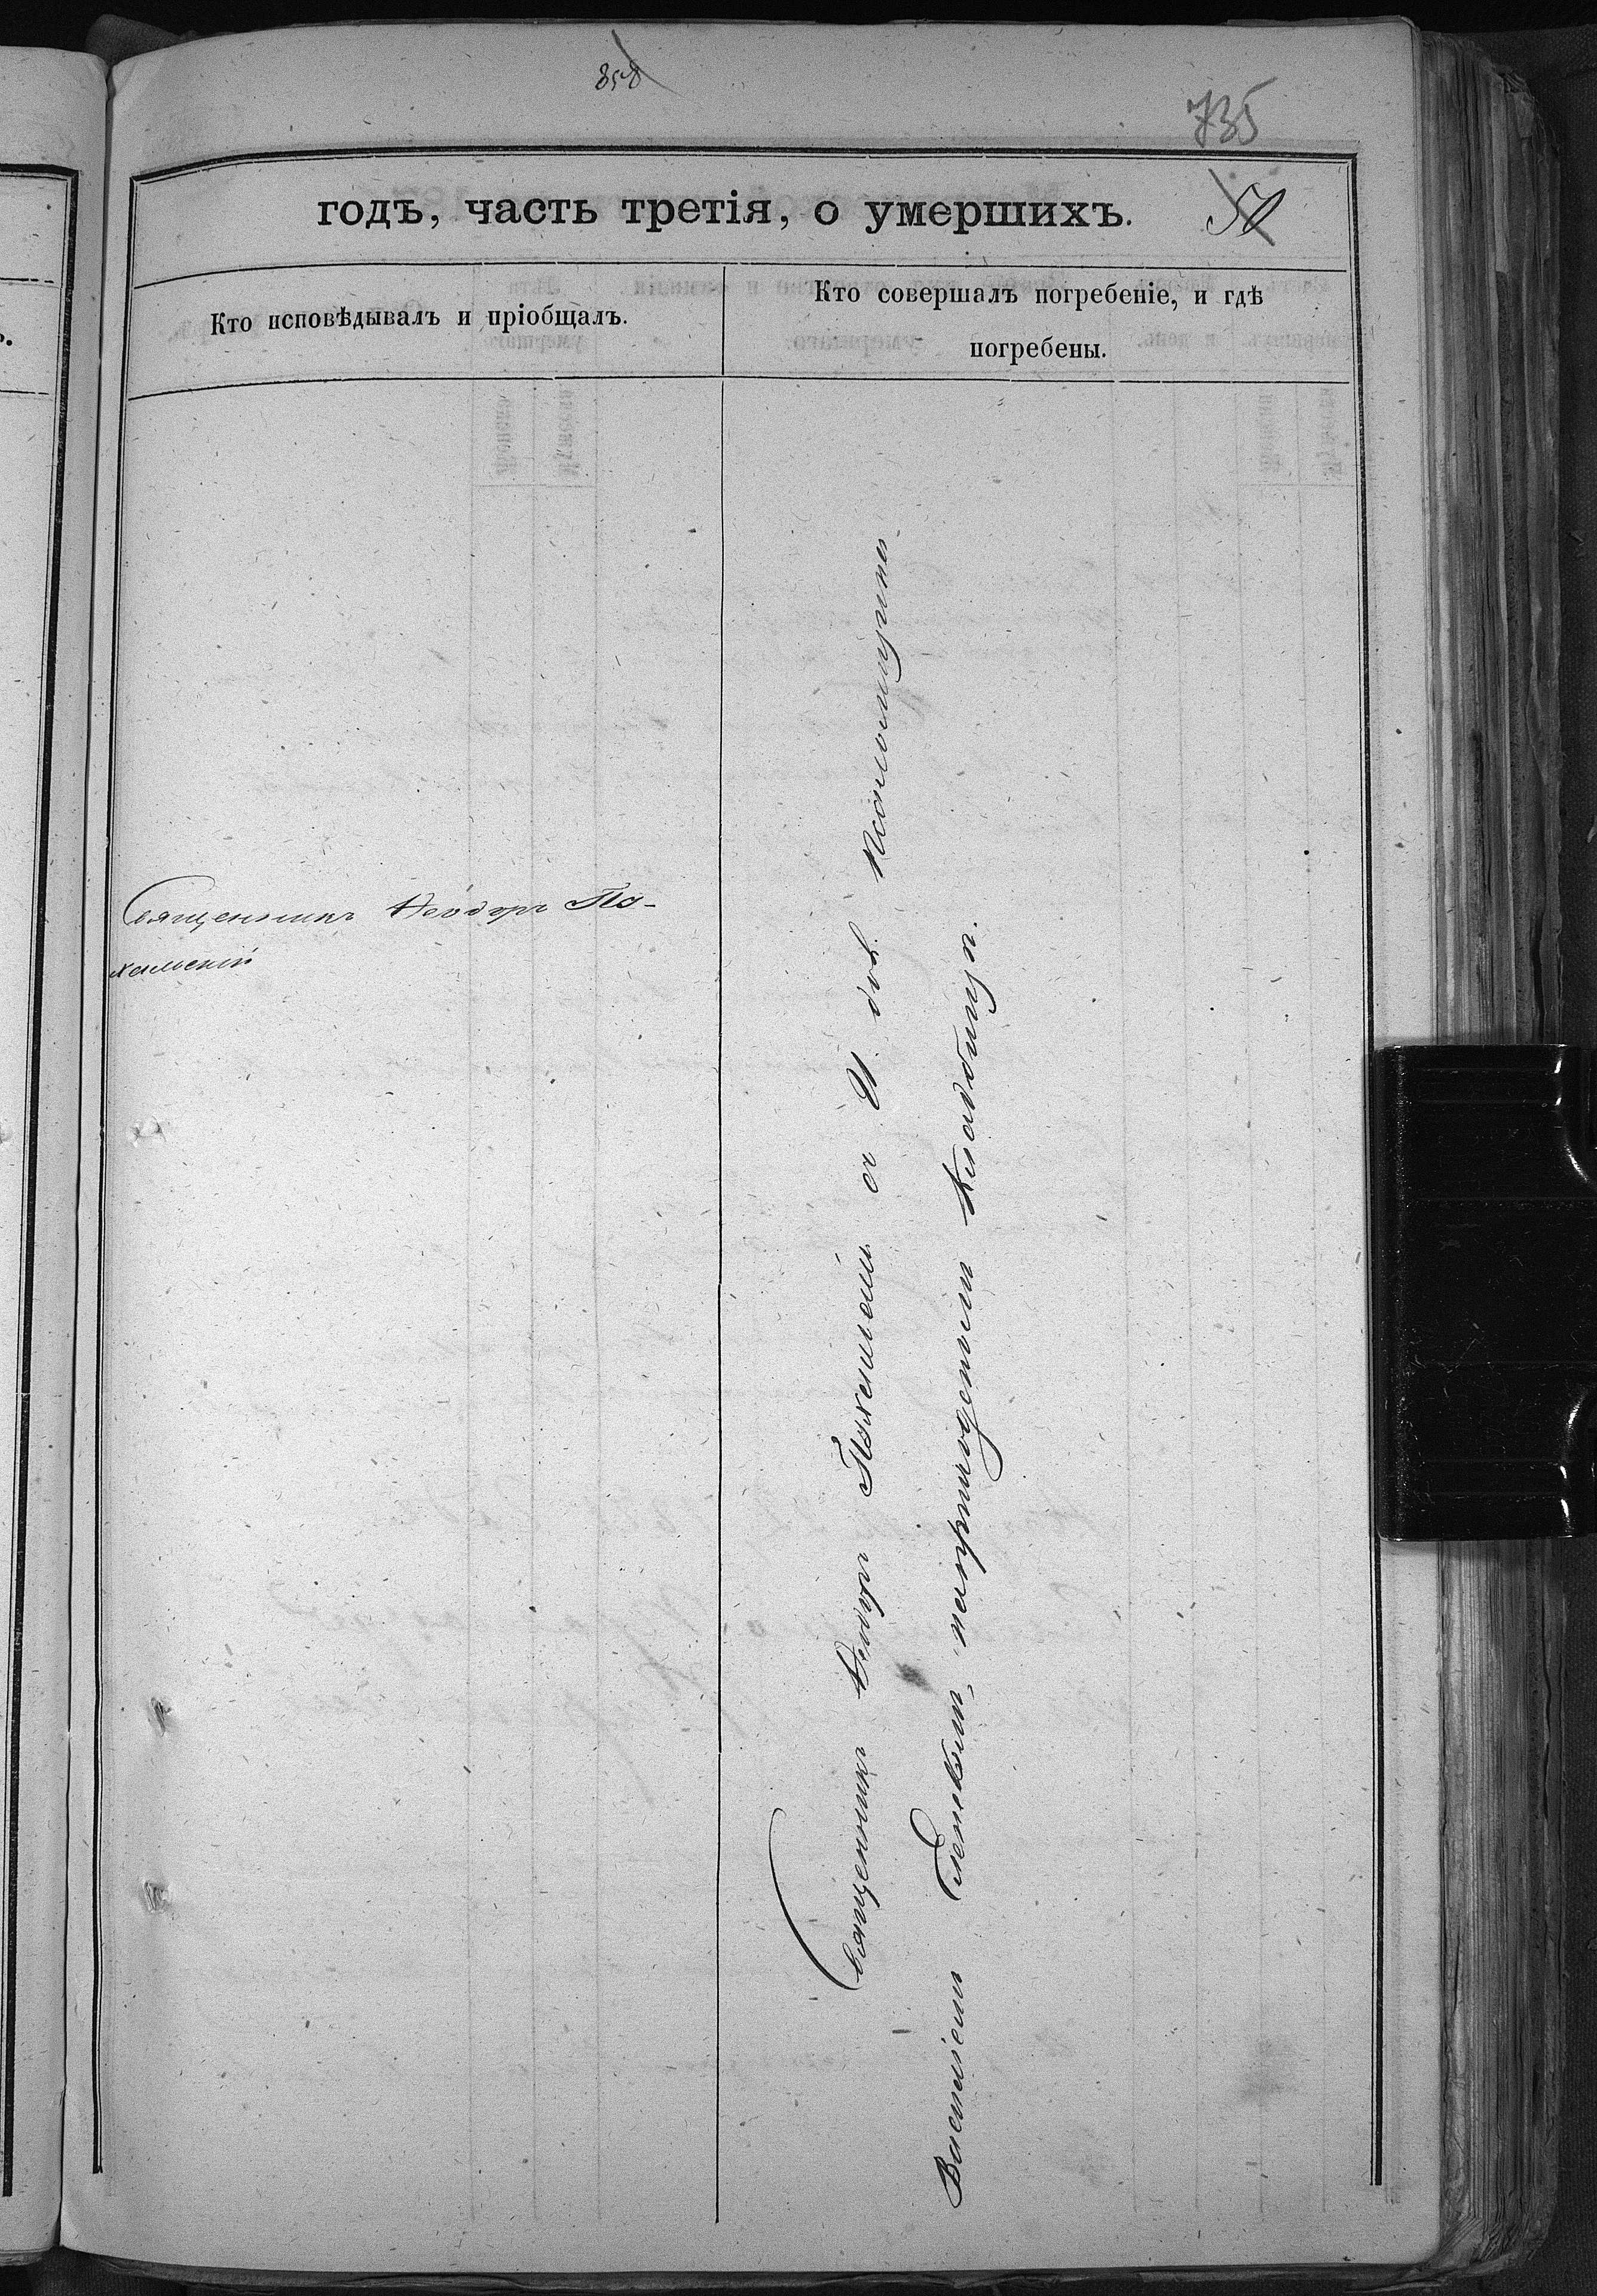 858
735
годъ, часть третія, о умершихъ.
50
Кто исповѣдывалъ и пріобщалъ.
Кто совершалъ погребеніе, и гдѣ
погребены.
Священникъ Ѳеодоръ По-
хильскій
Священникъ Ѳеодоръ съ И. дол. Псаломщика
Василіемъ на приходскомъ кладбищѣ.